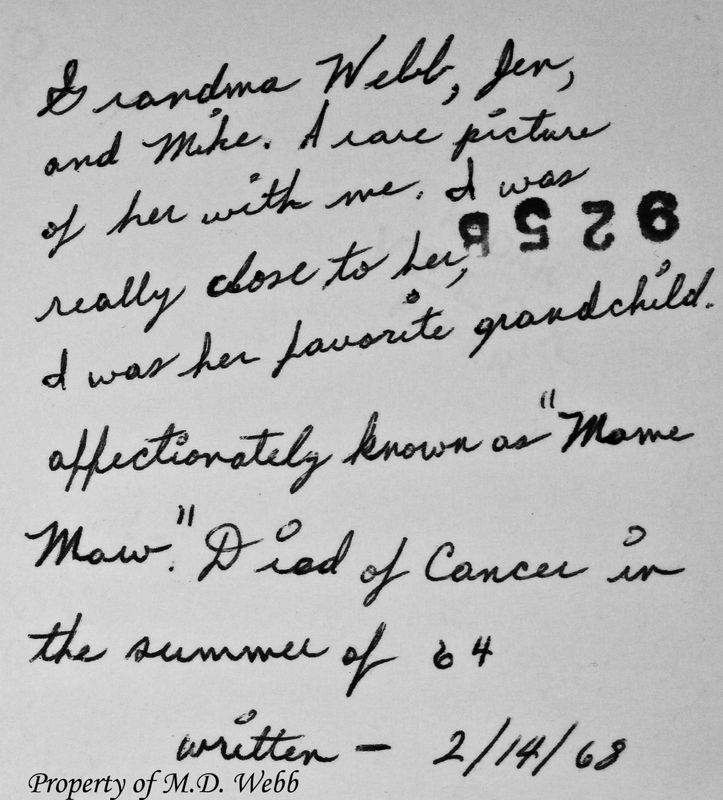 Grandma Webb, Jen,
and Mike. A rare picture
of her with me. I was
9256
really close to her,
I was her favorite grandchild.
affectionately known as "Mame
Maw". Died of Cancer in
the summer of 64
written - 2/14/68
Property of M.D. Webb